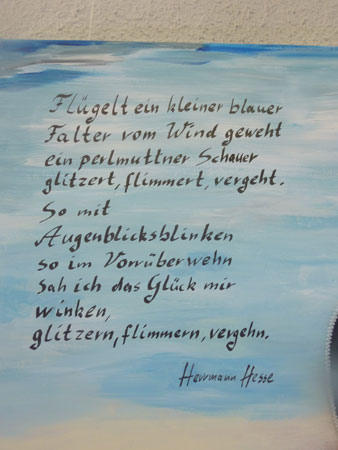 Flügelt ein kleiner blauer
Falter vom Wind geweht
ein perlmuttner Schauer
glitzert, flimmert, vergeht.
So mit
Augenblicksblinken
so im Vorrüberwehn
sah ich das Glück mir
winken,
glitzern, flimmern, vergehn.
Herrmann Hesse